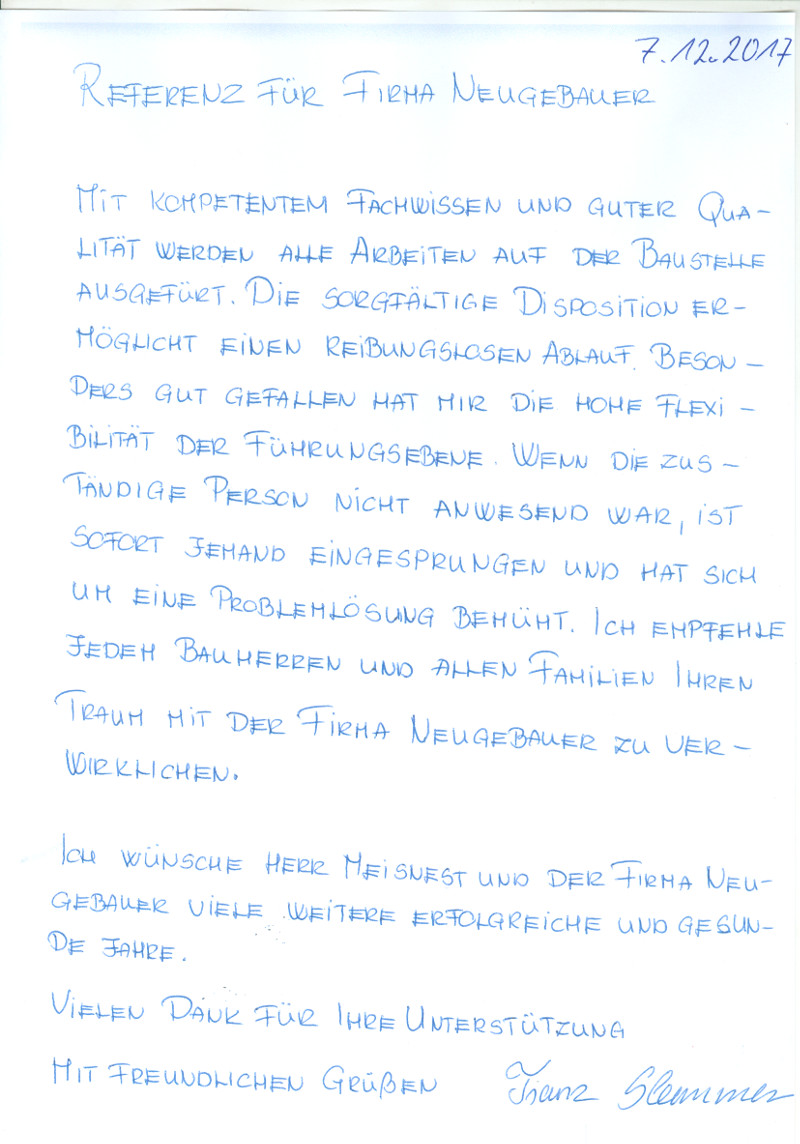 7.12.2017
REFERENZ FÜR FIRMA NEUGEBAUER
MIT KOMPETENTEM FACHWISSEN UND GUTER QUA-
LITÄT WERDEN ALLE ARBEITEN AUF DER BAUSTELLE
AUSGEFÜRT. DIE SORGFÄLTIGE DISPOSITION ER-
MÖGLICHT EINEN REIBUNGSLOSEN ABLAUF. BESON-
DERS GUT GEFALLEN HAT MIR DIE HOHE FLEXI-
BILITÄT DER FÜHRUNGSEBENE. WENN DIE ZUS-
TÄNDIGE PERSON NICHT ANWESEND WAR, IST
SOFORT JEMAND EINGESPRUNGEN UND HAT SICH
UM EINE PROBLEMLÖSUNG BEMÜHT. ICH EMPFEHLE
JEDEM BAUHERREN UND ALLEN FAMILIEN IHREN
TRAUM MIT DER FIRMA NEUGEBAUER ZU VER-
WIRKLICHEN.
ICH WÜNSCHE HERR MEISNEST UND DER FIRMA NEU-
GEBAUER VIELE WEITERE ERFOLGREICHE UND GESUN-
DE JAHRE.
VIELEN DANK FÜR IHRE UNTERSTÜTZUNG
MIT FREUNDLICHEN GRÜßEN Franz